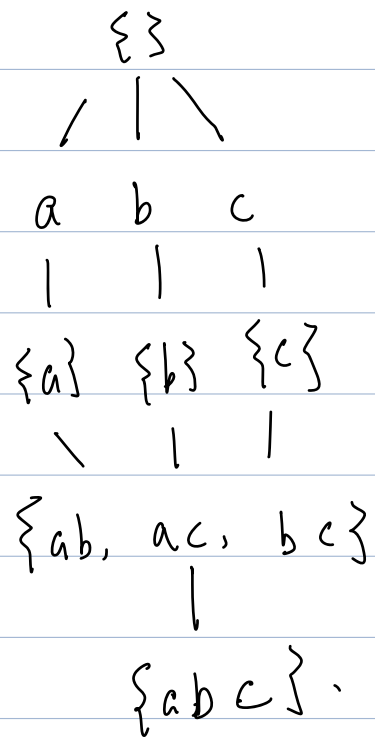 {}
a b c
{a} {b} {c}
{ab, ac, bc}
{abc}.